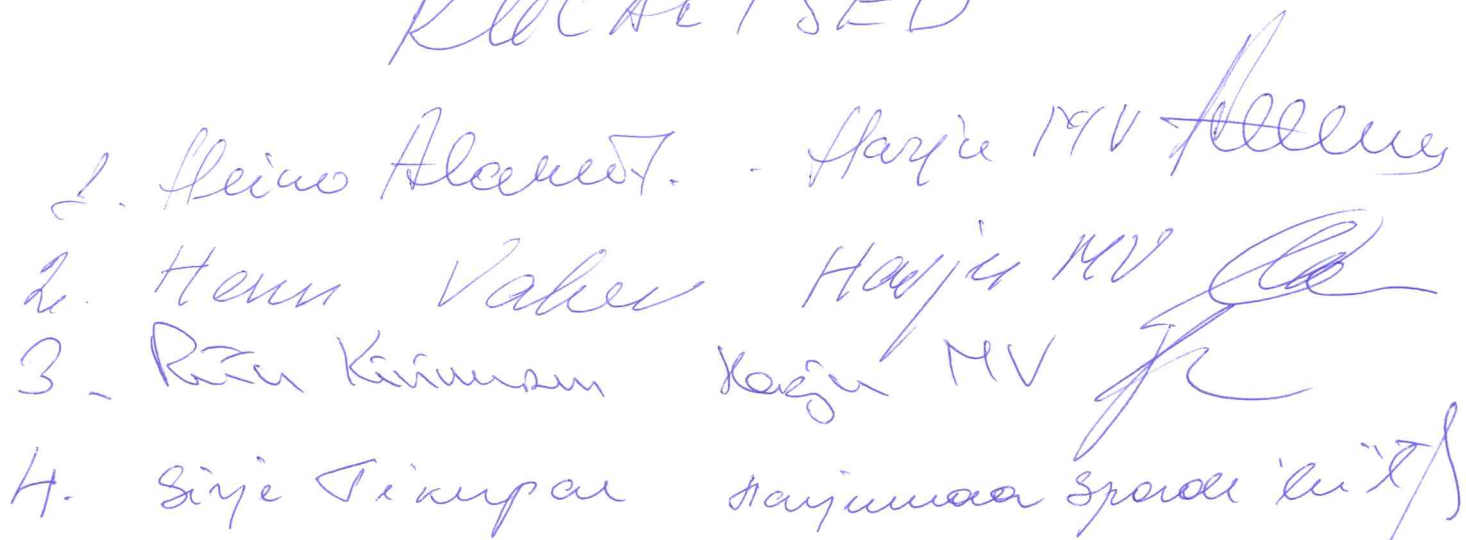 KÜLALISED
1. Heino Alaniit. - Harju MV
2. Henn Vaher Harju MV
3. Riin Kivinurm Harju MV
4. Sirje Tikupal Harjumaa Spordiliit